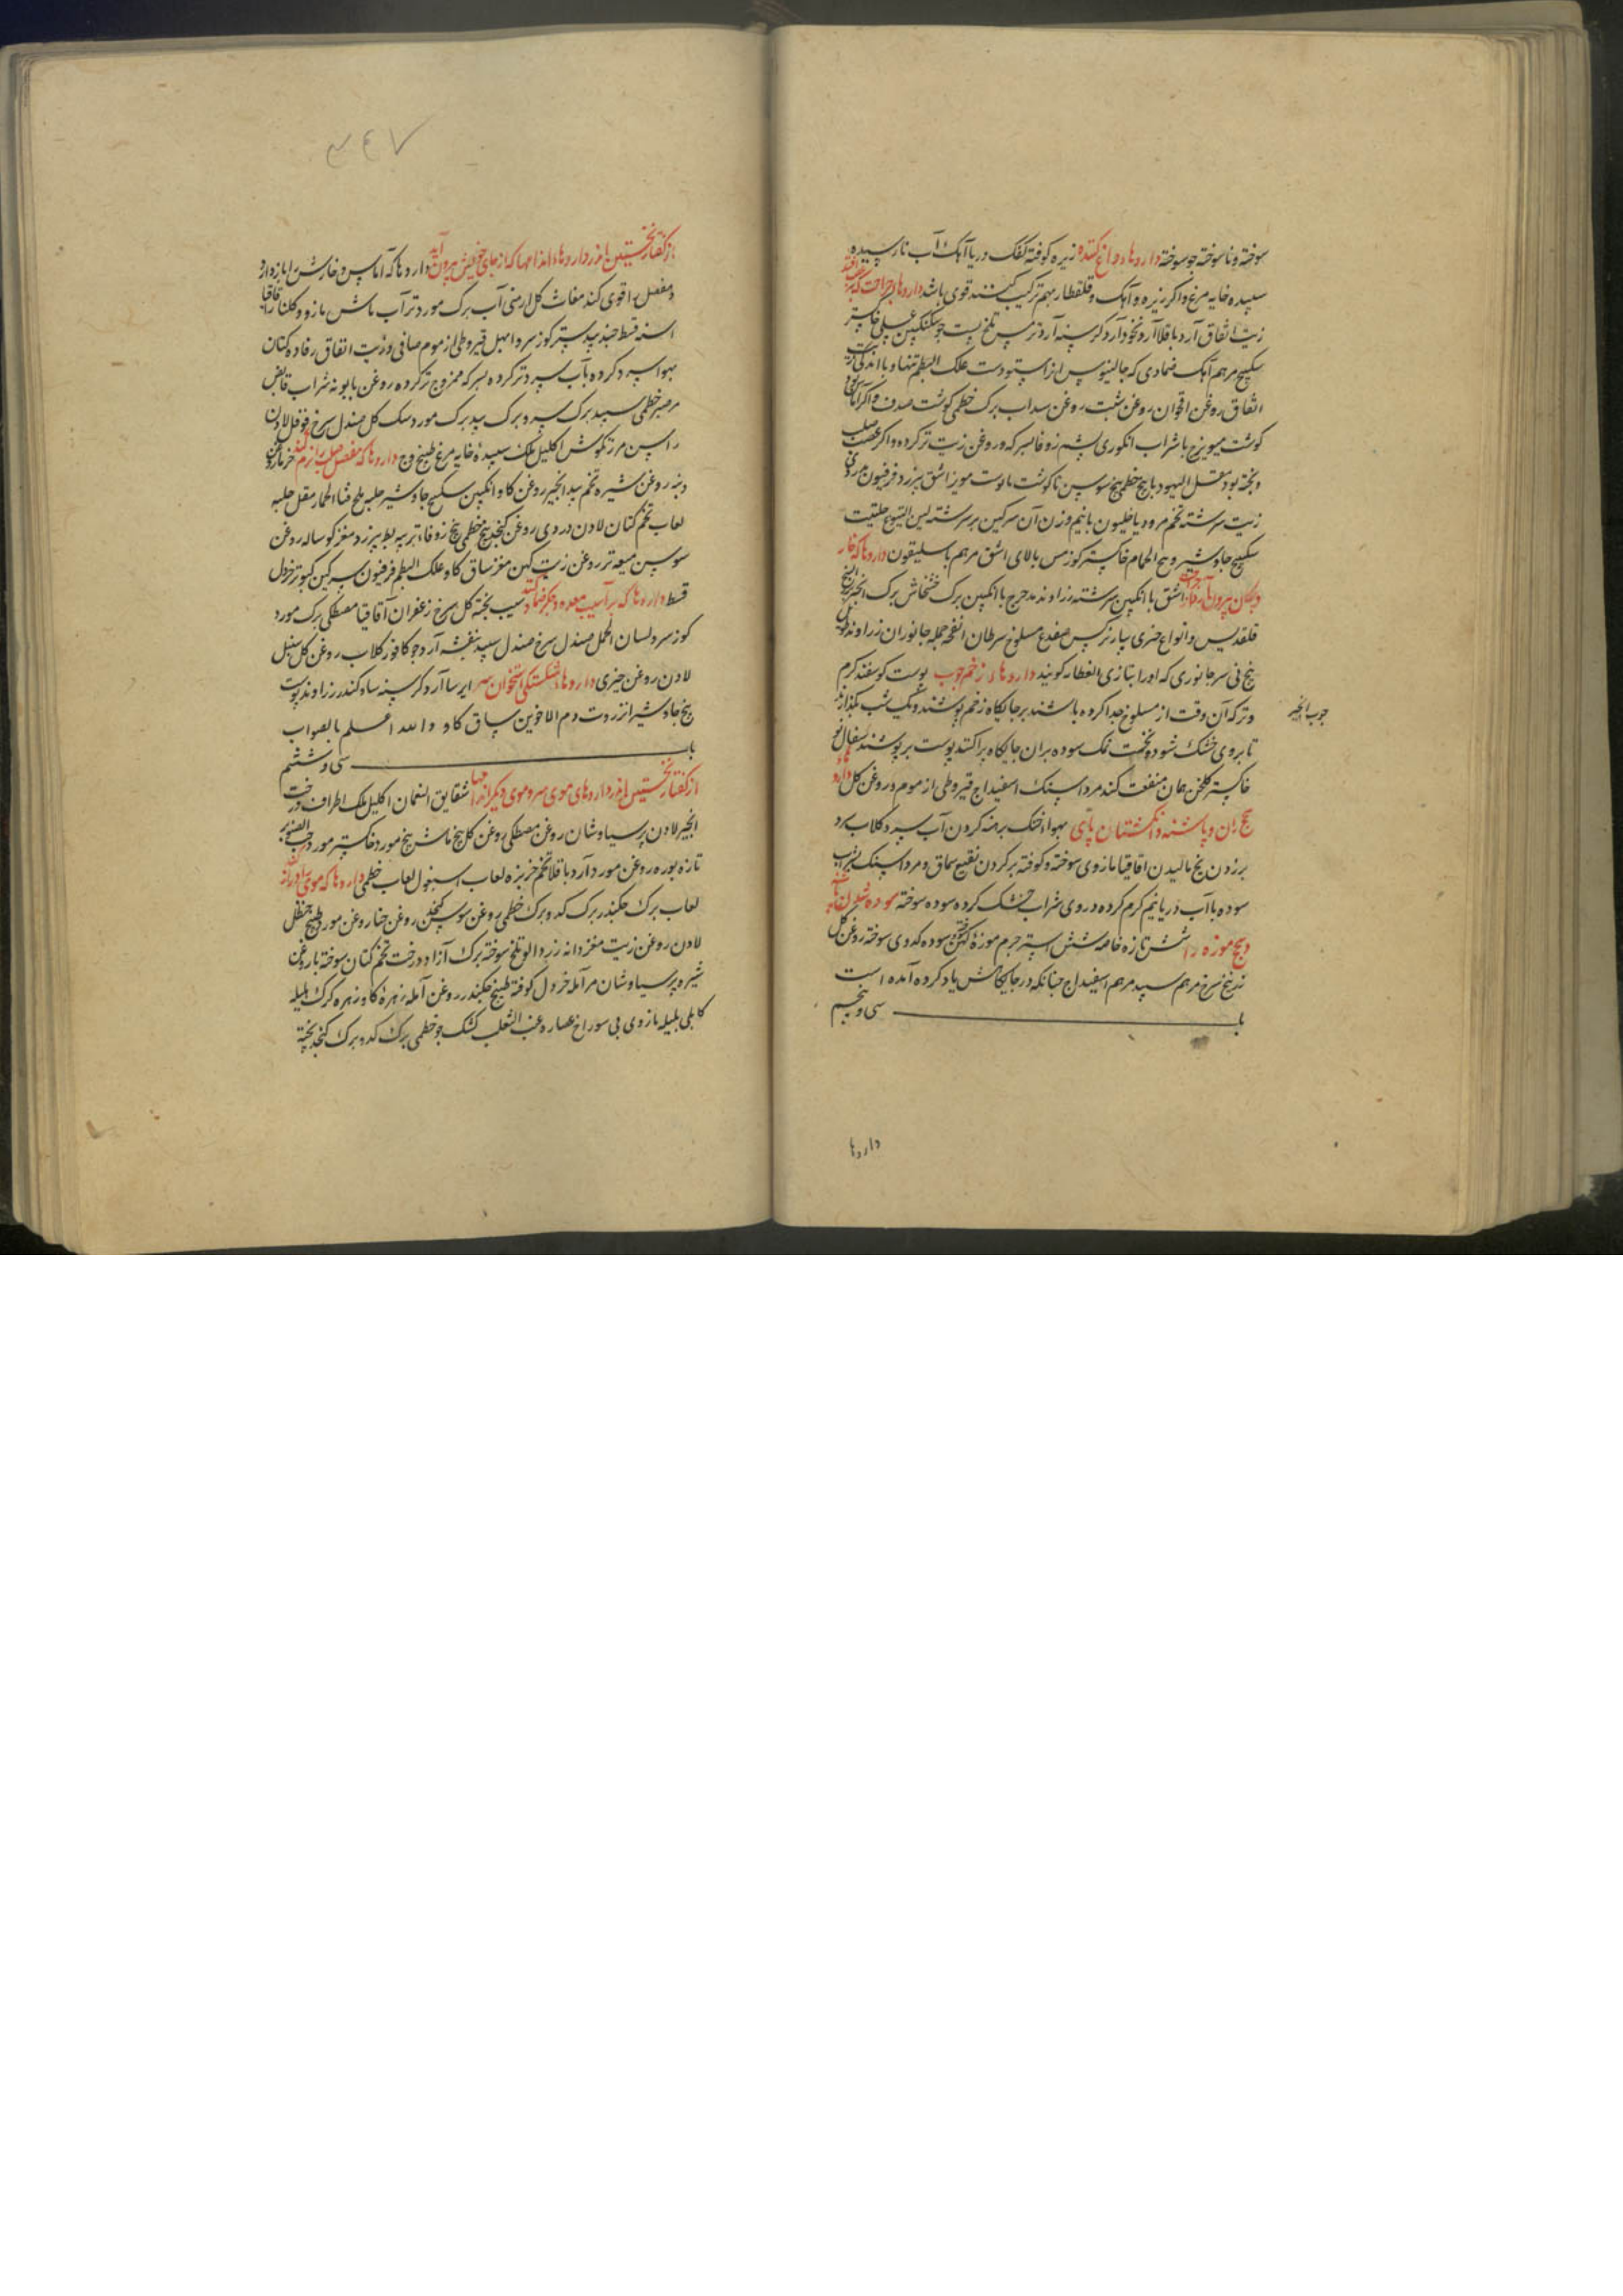 سوخته و ناسوخته جو سوخته داروهاء داغ کننده زیره کوفته کفک دریا آهک آب نارسیده
سپیده خایه مرغ و اکر زیره و آهک و قلقطار بهم ترکیب کنند قوی باشد داروهاء جراحت که بر عصب افتد
زیت انفاق آرد باقلا آرد نخود آرد کرسنه آرد ترمس تلخ پست جو سکنکبین عسلی خاکستر
سکبینج مرهم آهک ضمادی که جالینوس از استودست علک البطم تنها و با اندکی زیت
انفاق روغن اقحوان روغن شبت روغن سداب برک خطمی کوشت صدف و اکر آماس
کوشت میویزج با شراب انکوری پشم زوفا بسرکه و روغن زیت تر کرده و اکر عصب صلب
و پخته بود مقل الیهود با بیخ خطمی بیخ سوسن با کوشت مویز اشق بیرزد فرفیون دردی
زیت سرشته تخم مرو با خلیون با نیم وزن آن سرکین بز سرشته لبن الیتوع حلتیت
سکبینج جاوشیر وسخ الحمام خاکستر کوز مس بالای اشق مرهم باسلیقون داروها که خار
و پیکان بیرون آرد از جراحت اشق با انکبین سرشته زراوند مدحرج با انکبین برک خشخاش برک انجیر
قلقدیس و انواع خنزی پیاز نرکس ضفدع مسلوخ سرطان انفحه جمله جانوران زراوند طویل
بیخ نی سر جانوری که او را بتازی العظار کویند داروهاء زخم چوب پوست کوسفند کرم
و تر که آن وقت از مسلوخ جدا کرده باشند بر جایکاه زخم پوشند و یک شب بکذارند
تا بروی خشک شود و نخست نمک سوده بران جایکاه پراکنند پوست بر پوشند سفال نو
خاکستر کلخن همان منفعت کند مرداسنک اسفیداج قیروطی از موم و روغن کل داروهاء
سحج ران و پاشنه و انکشتان پای بهواء خنک برهنه کردن آب سرد و کلاب سرد
بر زدن یخ مالیدن اقاقیا مازوی سوخته و کوفته بر کردن نقیع سماق و مرداسنک بشراب
سوده با آب دریا نیم کرم کرده دردی شراب خشک کرده سوده سوخته سوده شدن پاشنه
و سحج موزه را شش تازه خاصه شش استر جرم موزهٔ کهن سوخته سوده کدوی سوخته روغن کل
زرنیخ سرخ مرهم سپید مرهم اسفیداج چنانکه در جایکاهش یاد کرده آمده است
باب سی و پنجم
چوب انجیر
داروها
۳۴۷
از کفتار نخستین اندر داروهاء اندامها که از جای خویش بیرون آید داروها که آماس و خارش را باز دارد
و مفصل را قوی کند مغاث کل ارمنی آب برک مورد تر آب ماش مازو و کلنار اقاقیا
اسنه قسط جندبیدستر کوز سرو ابهل قیروطی از موم صافی و زیت انفاق رفاده کتان
بهوا سرد کرده بآب سرد تر کرده بسرکه ممزوج تر کرده روغن بابونه شراب قابض
مر صبر خطمی سپید برک سرو برک بید برک مورد سک کل صندل سرخ فوفل لادن
راسن مرزنکوش اکلیل ملک سپیدهٔ خایه مرغ طبیخ وج داروها که مفصل صلب را نرم کند خرما روغن
دنبه روغن شیره تخم بید انجیر روغن کاو انکبین سکبینج جاوشیر حلبه بلخ قثاء الحمار مقل حلبه
لعاب تخم کتان لادن دردی روغن کنجد بیخ خطمی بیخ زوفاء تر پیه بط بیرزد مغز کوساله روغن
سوسن میعه تر روغن زیت کهن مغز ساق کاو علک البطم فرفیون سرکین کبوتر خردل
قسط داروها که بر آسیب معده و جکر ضماد کنند سیب پخته کل سرخ زعفران آقاقیا مصطکی برک مورد
کوز سرو لسان الحمل صندل سرخ صندل سپید بنفشه آرد جو کافور کلاب روغن کل سنبل
لادن روغن خیری داروهاء شکستکی استخوان سر ایرسا آرد کرسنه ساه کندر زراوند پوست
بیخ جاوشیر انزروت دم الاخوین ساق کاو والله اعلم بالصواب
باب سی و ششم
از کفتار نخستین اندر داروهای موی سر و موی دیکر اندامها شقایق النعمان اکلیل ملک اطراف درخت
انجیر لادن پرسیاوشان روغن مصطکی روغن کل بیخ ماش بیخ مورد خاکستر مورد حب الصنوبر
تازه بوره روغن مورد آرد باقلا تخم خربزه لعاب اسبغول لعاب خطمی داروها که موی را دراز کند
لعاب برک چکندر برک کدو برک خطمی روغن سوسن کنجد روغن حنا روغن مورد طبیخ حنظل
لادن روغن زیت مغز دانه زردالو تلخ سوخته برک آزاد درخت تخم کتان سوخته با روغن
شیره پرسیاوشان مر آمله خردل کوفته طبیخ چکندر روغن آمله زهرهٔ کاو زهره کرک هلیله
کابلی بلیله مازوی بی سوراخ عصاره عنب الثعلب کشک جو خطمی برک کدو برک کنجد پخته